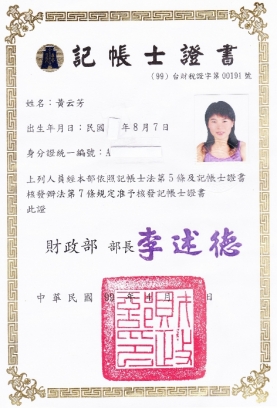 記帳士證書
(99)台財稅證字第00191號
姓名:黃云芳
出生年月日:民國 年8月7日
身分證統一編號:A
上列人員經本部依照記帳士法第5條及記帳士證書
核發辦法第7條規定准予核發記帳士證書
此證
財政部 部長 李述德
中華民國 99 年 4 月 日
財政部印